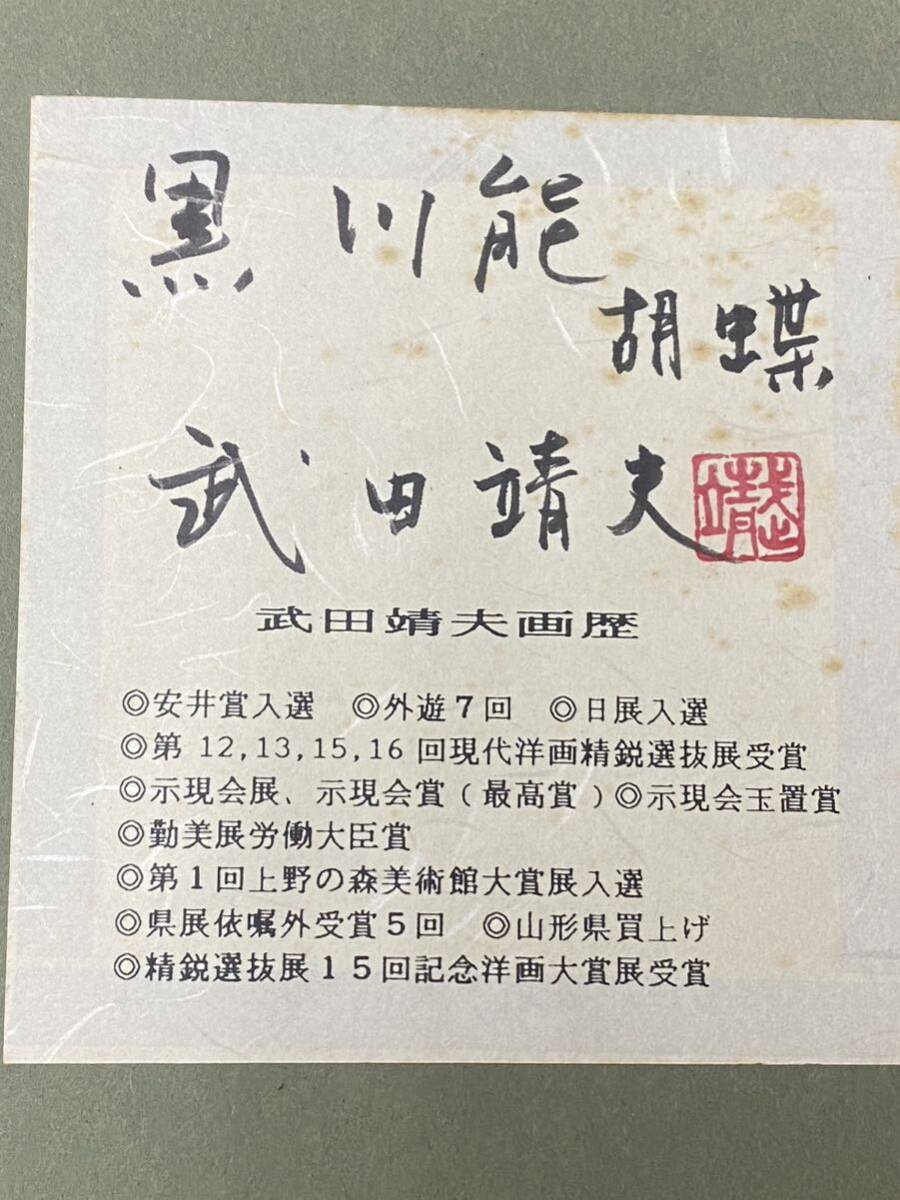 黒川能
胡蝶
武田靖夫
武田靖夫画歴
◎安井賞入選　◎外遊7回　◎日展入選
◎第 12,13,15,16 回現代洋画精鋭選抜展受賞
◎示現会展、示現会賞（最高賞）◎示現会玉置賞
◎勤美展労働大臣賞
◎第1回上野の森美術館大賞展入選
◎県展依嘱外受賞5回　◎山形県買上げ
◎精鋭選抜展15回記念洋画大賞展受賞